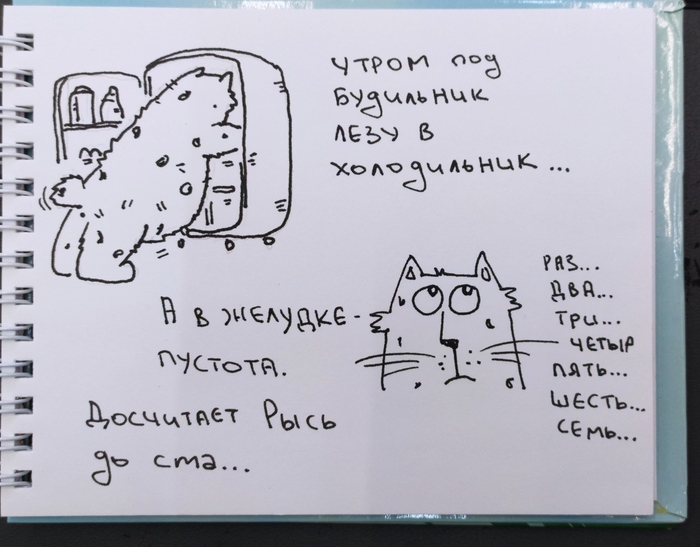 УТРОМ ПОД
БУДИЛЬНИК
ЛЕЗУ В
ХОЛОДИЛЬНИК...
А В ЖЕЛУДКЕ-
ПУСТОТА.
ДОСЧИТАЕТ РЫСЬ
ДО СТА...
РАЗ...
ДВА...
ТРИ...
ЧЕТЫР
ПЯТЬ...
ШЕСТЬ...
СЕМЬ...